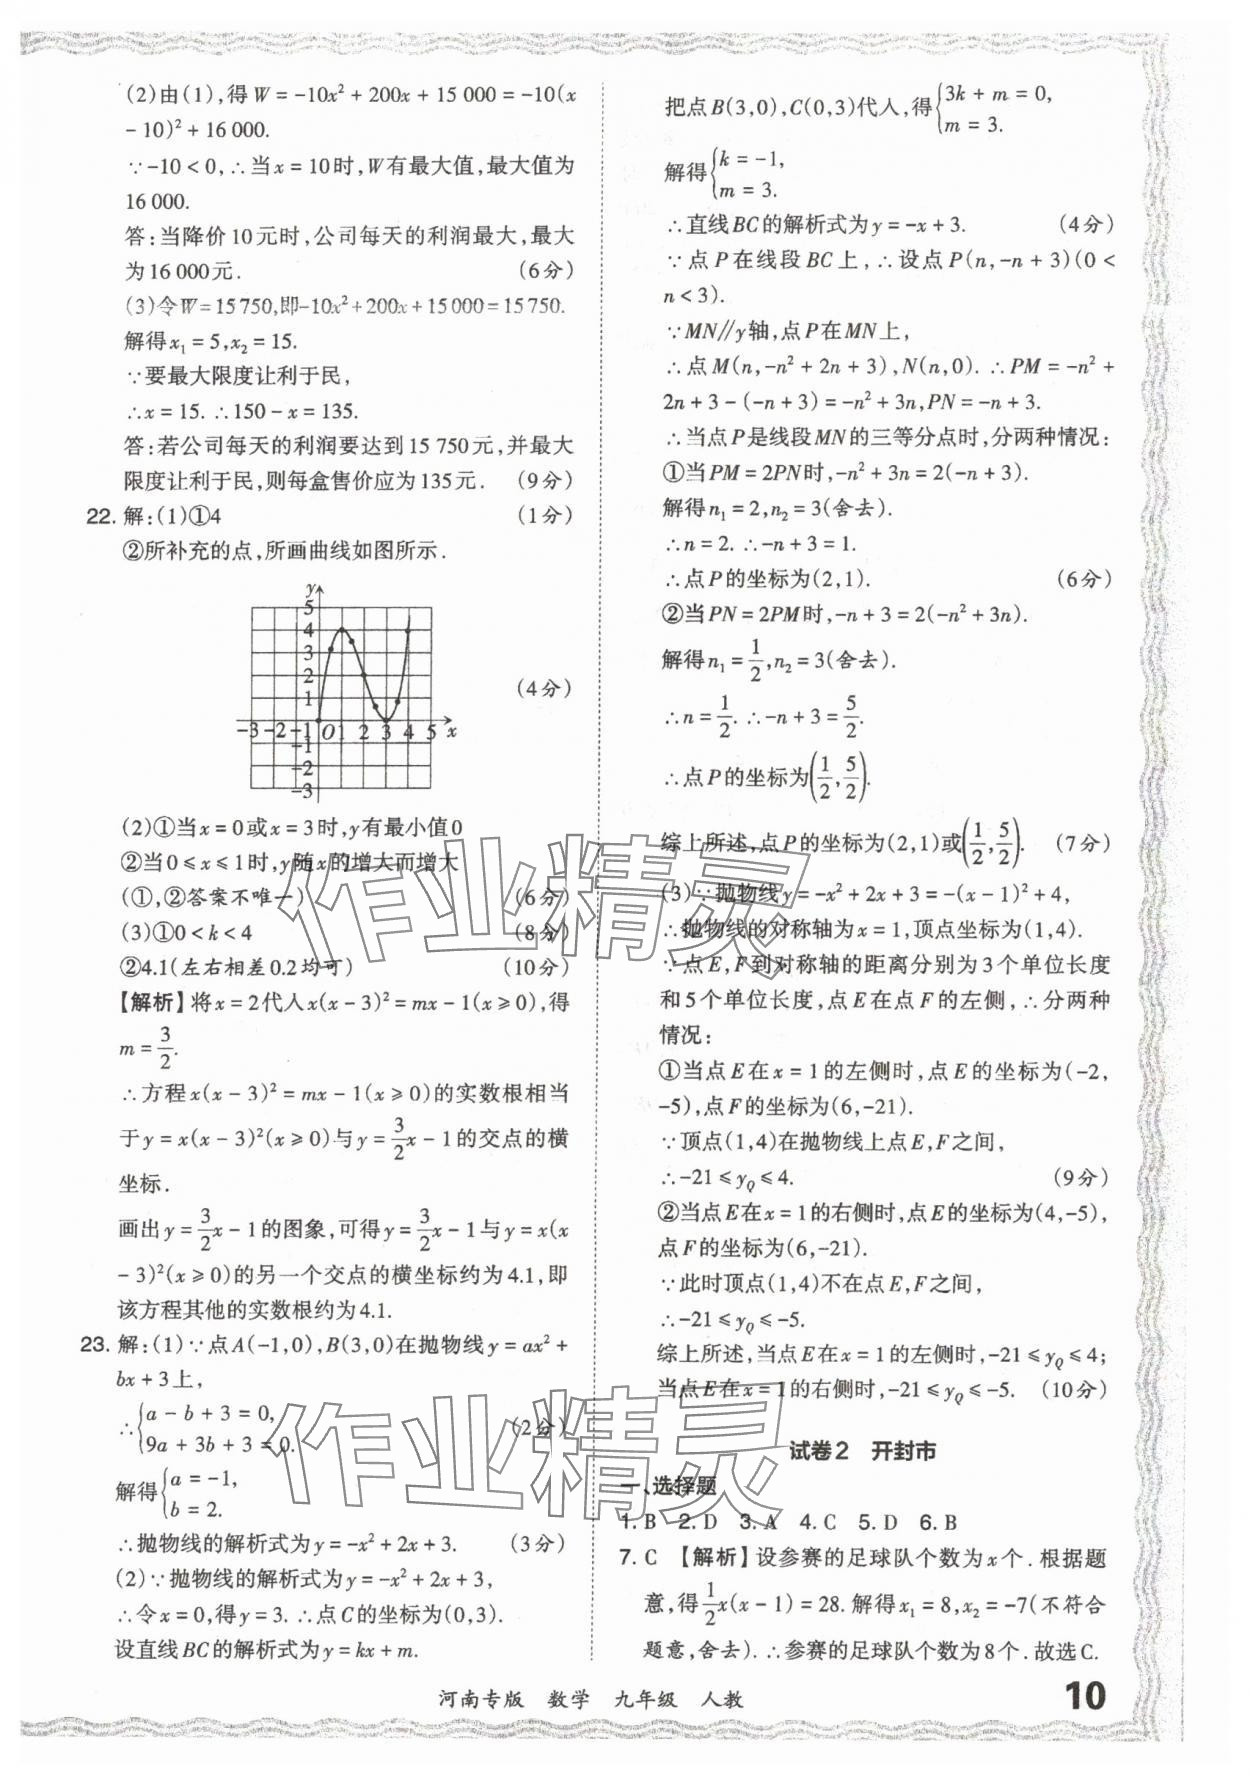 (2)由(1),得W=-10x²+200x+15 000=-10(x
-10)²+16 000.
∵-10<0,∴当x=10时,W有最大值,最大值为
16 000.
答:当降价10元时,公司每天的利润最大,最大
为16 000元. (6分)
(3)令W=15 750,即-10x²+200x+15 000=15 750.
解得x₁=5,x₂=15.
∵要最大限度让利于民,
∴x=15. ∴150-x=135.
答:若公司每天的利润要达到15 750元,并最大
限度让利于民,则每盒售价应为135元. (9分)
22. 解:(1)①4 (1分)
②所补充的点,所画曲线如图所示.
y
5
4
3
2
1
-3 -2 -1 O 1 2 3 4 5 x
-1
-2
-3
(4分)
(2)①当x=0或x=3时,y有最小值0
②当0≤x≤1时,y随x的增大而增大
(①,②答案不唯一) (6分)
(3)①0<k<4 (8分)
②4.1(左右相差0.2均可) (10分)
【解析】将x=2代入x(x-3)²=mx-1(x≥0),得
m=3/2.
∴方程x(x-3)²=mx-1(x≥0)的实数根相当
于y=x(x-3)²(x≥0)与y=3/2x-1的交点的横
坐标.
画出y=3/2x-1的图象,可得y=3/2x-1与y=x(x
-3)²(x≥0)的另一个交点的横坐标约为4.1,即
该方程其他的实数根约为4.1.
23. 解:(1)∵点A(-1,0),B(3,0)在抛物线y=ax²+
bx+3上,
∴{a-b+3=0,
9a+3b+3=0. (2分)
解得{a=-1,
b=2.
∴抛物线的解析式为y=-x²+2x+3. (3分)
(2)∵抛物线的解析式为y=-x²+2x+3,
∴令x=0,得y=3. ∴点C的坐标为(0,3).
设直线BC的解析式为y=kx+m.
把点B(3,0),C(0,3)代入,得{3k+m=0,
m=3.
解得{k=-1,
m=3.
∴直线BC的解析式为y=-x+3. (4分)
∵点P在线段BC上,∴设点P(n,-n+3)(0<
n<3).
∵MN∥y轴,点P在MN上,
∴点M(n,-n²+2n+3),N(n,0). ∴PM=-n²+
2n+3-(-n+3)=-n²+3n,PN=-n+3.
∴当点P是线段MN的三等分点时,分两种情况:
①当PM=2PN时,-n²+3n=2(-n+3).
解得n₁=2,n₂=3(舍去).
∴n=2. ∴-n+3=1.
∴点P的坐标为(2,1). (6分)
②当PN=2PM时,-n+3=2(-n²+3n).
解得n₁=1/2,n₂=3(舍去).
∴n=1/2. ∴-n+3=5/2.
∴点P的坐标为(1/2,5/2).
综上所述,点P的坐标为(2,1)或(1/2,5/2). (7分)
(3)∵抛物线y=-x²+2x+3=-(x-1)²+4,
∴抛物线的对称轴为x=1,顶点坐标为(1,4).
∵点E,F到对称轴的距离分别为3个单位长度
和5个单位长度,点E在点F的左侧,∴分两种
情况:
①当点E在x=1的左侧时,点E的坐标为(-2,
-5),点F的坐标为(6,-21).
∵顶点(1,4)在抛物线上点E,F之间,
∴-21≤y_Q≤4. (9分)
②当点E在x=1的右侧时,点E的坐标为(4,-5),
点F的坐标为(6,-21).
∵此时顶点(1,4)不在点E,F之间,
∴-21≤y_Q≤-5.
综上所述,当点E在x=1的左侧时,-21≤y_Q≤4;
当点E在x=1的右侧时,-21≤y_Q≤-5. (10分)
试卷2 开封市
一、选择题
1. B 2. D 3. A 4. C 5. D 6. B
7. C 【解析】设参赛的足球队个数为x个. 根据题
意,得1/2x(x-1)=28. 解得x₁=8,x₂=-7(不符合
题意,舍去). ∴参赛的足球队个数为8个. 故选C.
河南专版 数学 九年级 人教
10
作业精灵
作业精灵